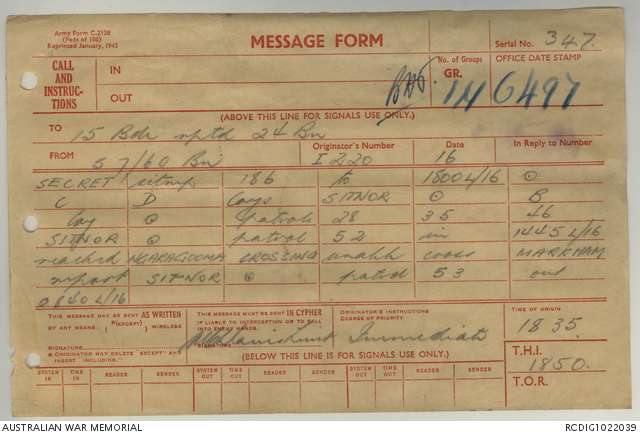 Army Form C.2130
(Pads of 100)
Reprinted January, 1943
MESSAGE FORM
Serial No. 347.
CALL AND INSTRUC-TIONS
IN
OUT
No. of Groups
GR. 114
OFFICE DATE STAMP
6497
(ABOVE THIS LINE FOR SIGNALS USE ONLY.)
TO 15 Bde rptd 24 Bn
FROM 57/60 Bn
Originator's Number I 220
Date 16
In Reply to Number
SECRET sitrep 186 to 1800L/16 ⊙
C D Coys SITNOR ⊙ B
Coy ⊙ patrols 28 35 46
SITNOR ⊙ patrol 52 in 1445L/16
reached NGARAGOOMA CROSSING unable cross MARKHAM
report SITNOR ⊙ patrol 53 out
0840L/16
THIS MESSAGE MAY BE SENT AS WRITTEN
BY ANY MEANS. (*EXCEPT) WIRELESS
SIGNATURE
⊙ ORIGINATOR MAY DELETE "EXCEPT" AND
INSERT "INCLUDING".
THIS MESSAGE MUST BE SENT IN CYPHER
IF LIABLE TO INTERCEPTION OR TO FALL
INTO ENEMY HANDS.
SIGNATURE
ORIGINATOR'S INSTRUCTIONS
DEGREE OF PRIORITY.
Immediate
TIME OF ORIGIN
1835.
(BELOW THIS LINE IS FOR SIGNALS USE ONLY.)
T.H.I. 1850.
T.O.R.
SYSTEM IN TIME IN READER SENDER SYSTEM OUT TIME OUT READER SENDER SYSTEM OUT TIME OUT READER SENDER
AUSTRALIAN WAR MEMORIAL
RCDIG1022039